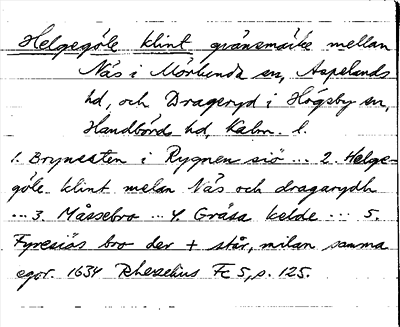 Helgegöle klint gränsmärke mellan
Näs i Mörlunda sn, Aspelands
hd, och Drageryd i Högsby sn,
Handbörds hd, Kalm. l.
1. Brynesten i Rygnen siö ... 2. Helge-
göle klint melan Näs och dragarydh
... 3. Måssebro ... 4. Gråsa kelde ... 5.
Fyresiös bro der + står, milan samma
egor. 1634 Rhezelius Fc 5, s. 125.